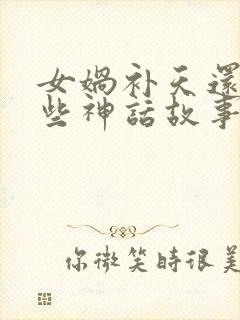 女媧补天還
些神話故事
你微笑時很美